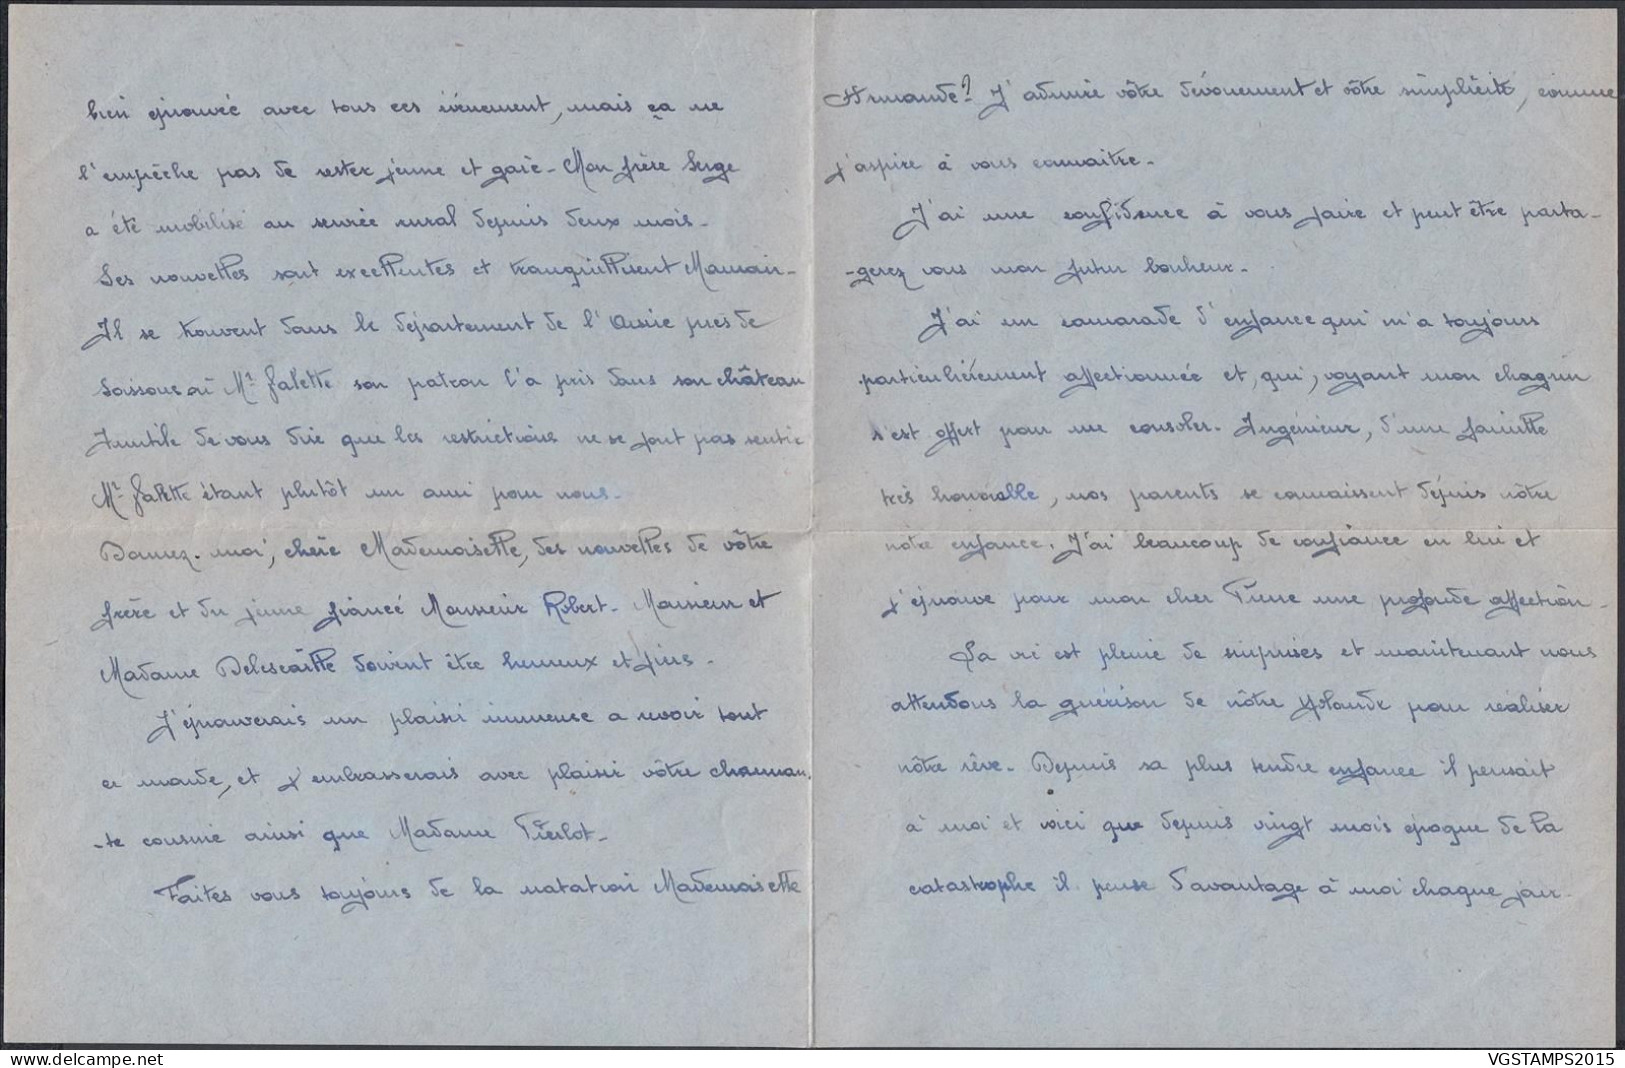 bien éprouvée avec tous ces évènement, mais ça ne
l'empêche pas de rester jeune et gaie - Mon frère Serge
a été mobilisé au service rural depuis deux mois -
Ses nouvelles sont excellentes et tranquillisent Maman -
Il se trouvent dans le département de l'Aisne près de
Soissons où Mr Falette son patron l'a pris dans son château
Inutile de vous dire que les restrictions ne se font pas sentir
Mr Falette étant plutôt un ami pour nous -
Donnez-moi, chère Mademoiselle, des nouvelles de vôtre
frère et du jeune fiancé Monsieur Robert - Monsieur et
Madame Delescaille doivent être heureux et fiers -
J'éprouverais un plaisir immense a revoir tout
ce monde, et j'embrasserais avec plaisir vôtre charman
-te cousine ainsi que Madame Pierlot -
Faites vous toujours de la natation Mademoiselle
Armande? J'admire vôtre dévouement et vôtre simplicité, comme
j'aspire à vous connaitre -
J'ai une confidence à vous faire et peut être parta-
-gerez vous mon futur bonheur -
J'ai un camarade d'enfance qui m'a toujours
particulièrement affectionnée et, qui, voyant mon chagrin
s'est offert pour me consoler - Ingénieur, d'une famille
très honorable, nos parents se connaissent depuis nôtre
nôtre enfance. J'ai beaucoup de confiance en lui et
j'éprouve pour mon cher Pierre une profonde affection -
La vie est pleine de surprises et maintenant nous
attendons la guérison de nôtre Yolande pour réaliser
nôtre rêve - Depuis sa plus tendre enfance il pensait
à moi et voici que depuis vingt mois époque de la
catastrophe il pense davantage à moi chaque jour -
VGSTAMPS2015
delcampe.net